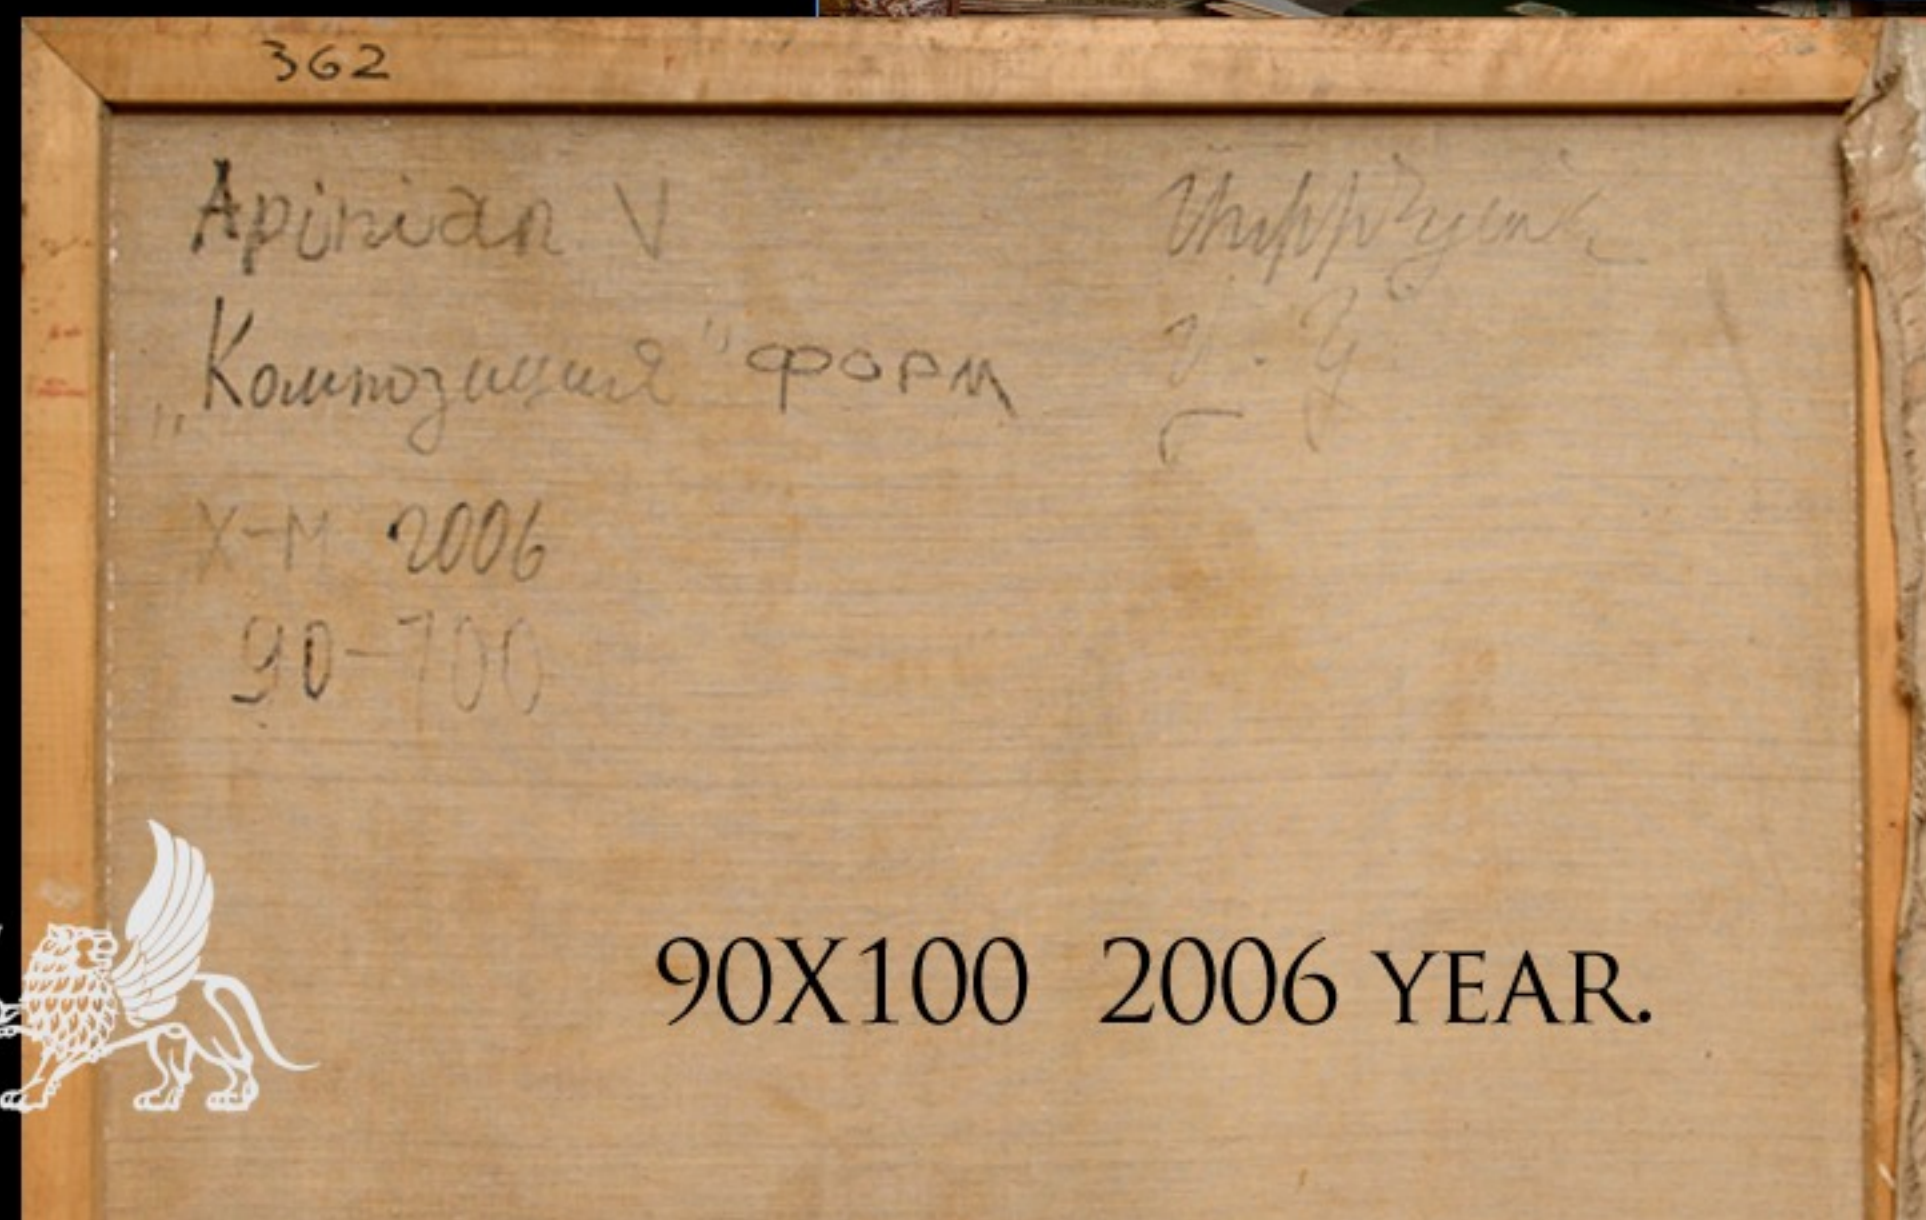 362
Apinian V
„Композиция" форм
X-M 2006
90-100
90X100 2006 YEAR.